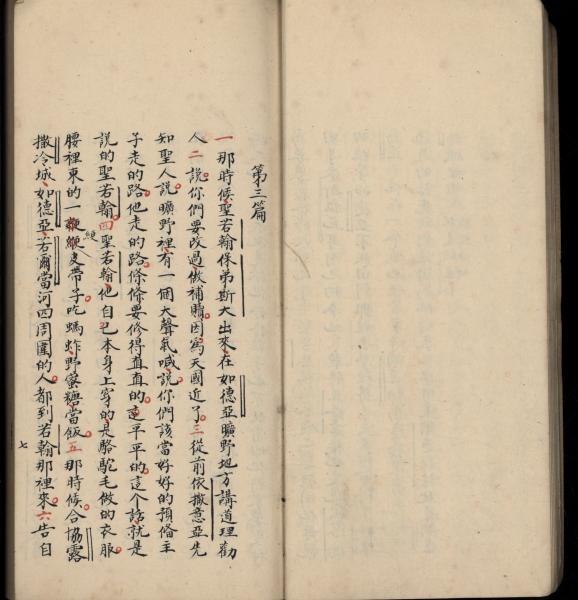 第三篇
一那時候聖若翰保弟斯大出來在如德亞曠野地方講道理勸
人二說你們要改過做補贖因為天國近了三從前依撒意亞先
知聖人說曠野裡有一個大聲氣喊說你們該當好好的預備主
子走的路他走的路條條要修得直直的這平平的這个話就是
說的聖若翰四聖若翰他自己本身上穿的是駱駝毛做的衣服
腰裡束的一根綆皮帶子吃螞蚱野蜜糖當飯五那時候合協露
撒冷城如德亞若爾當河四周圍的人都到若翰那裡來六告自
七